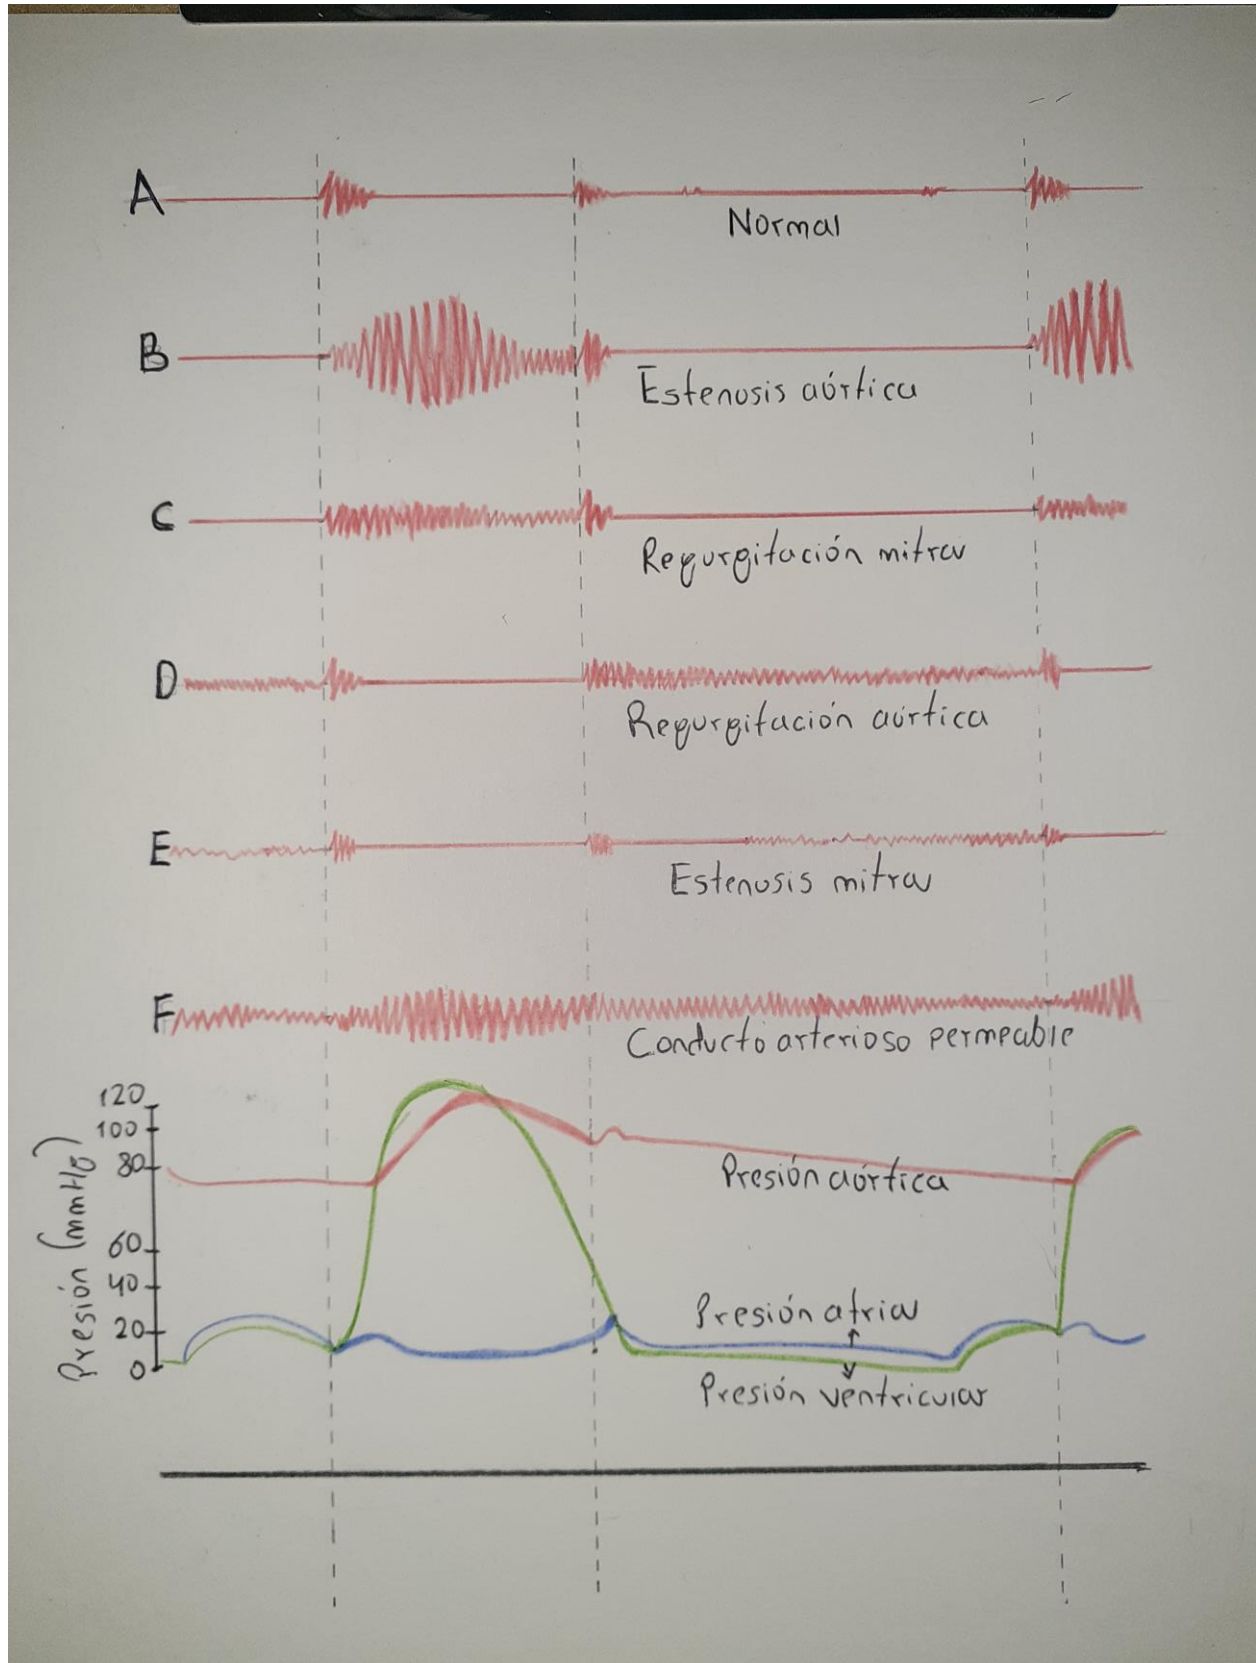 A
Normal
B
Estenosis aórtica
C
Regurgitación mitral
D
Regurgitación aórtica
E
Estenosis mitral
F
Conducto arterioso permeable
120
100
80
60
40
20
0
Presión (mmHg)
Presión aórtica
Presión atrial
Presión ventricular